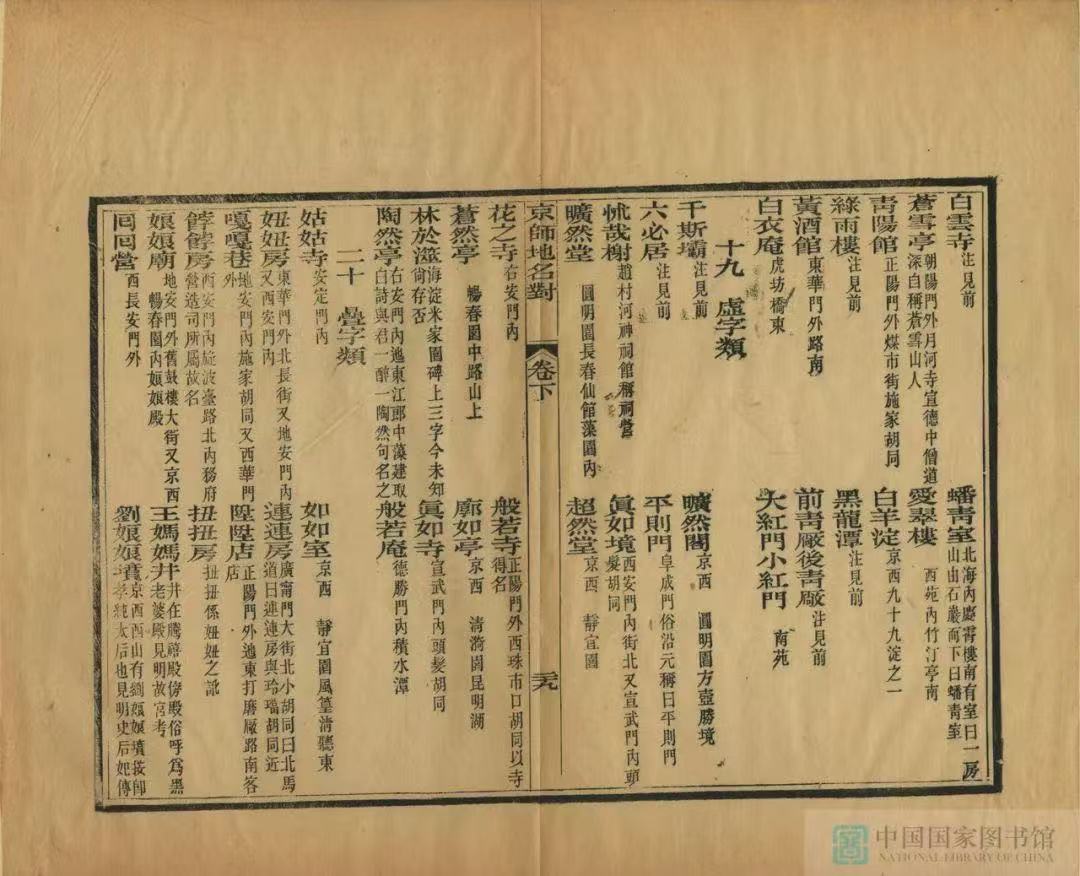 白雲寺 注見前 蟠青室 北海內慶霄樓南有室曰一房山山石巖而下曰蟠青室
蒼雪亭 朝陽門外月河寺宣德中僧道深自稱蒼雪山人 愛翠樓 西苑內竹汀亭南
青陽館 正陽門外煤市街施家胡同 白羊淀 京西九十九淀之一
綠雨樓 注見前 黑龍潭 注見前
黃酒館 東華門外路南 前青廠後青廠 注見前
白衣庵 虎坊橋東 大紅門小紅門 南苑
十九 虛字類
千斯壩 注見前 曠然閣 京西 圓明園方壺勝境
六必居 注見前 平則門 阜成門俗沿元稱曰平則門
怵哉榭 趙村河神祠館稱祠營 眞如境 西安門內街北又宣武門內頭髮胡同
曠然堂 圓明園長春仙館藻園內 超然堂 京西 靜宜園
京師地名對 卷下 二十九
花之寺 右安門內 般若寺 正陽門外西珠市口胡同以寺得名
蒼然亭 暢春園中路山上 廓如亭 京西 清漪園昆明湖
林於澨 海淀米家園碑上三字今未知尙存否 眞如寺 宣武門內頭髮胡同
陶然亭 右安門內迤東江郎中藻建取白詩與君一醉一陶然句名之 般若庵 德勝門內積水潭
二十 疊字類
姑姑寺 安定門內 如如室 京西 靜宜園風篁清聽東
妞妞房 東華門外北長街又地安門內又西安門內 連連房 廣甯門大街北小胡同曰北馬道曰連連房與玲瑞胡同近
嘎嘎巷 地安門內施家胡同又西華門外 陞陞店 正陽門外迤東打磨廠路南客店
餑餑房 西安門內旋波臺路北內務府營造司所屬故名 扭扭房 扭扭係妞妞之訛
娘娘廟 地安門外舊鼓樓大街又京西 暢春園內娘娘殿 王媽媽井 井在騰禧殿傍殿俗呼爲黑老婆殿見明故宮考
回回營 西長安門外 劉娘娘墳 京西西山有劉娘娘墳按卽孝純太后也見明史后妃傳
中国国家图书馆
NATIONAL LIBRARY OF CHINA